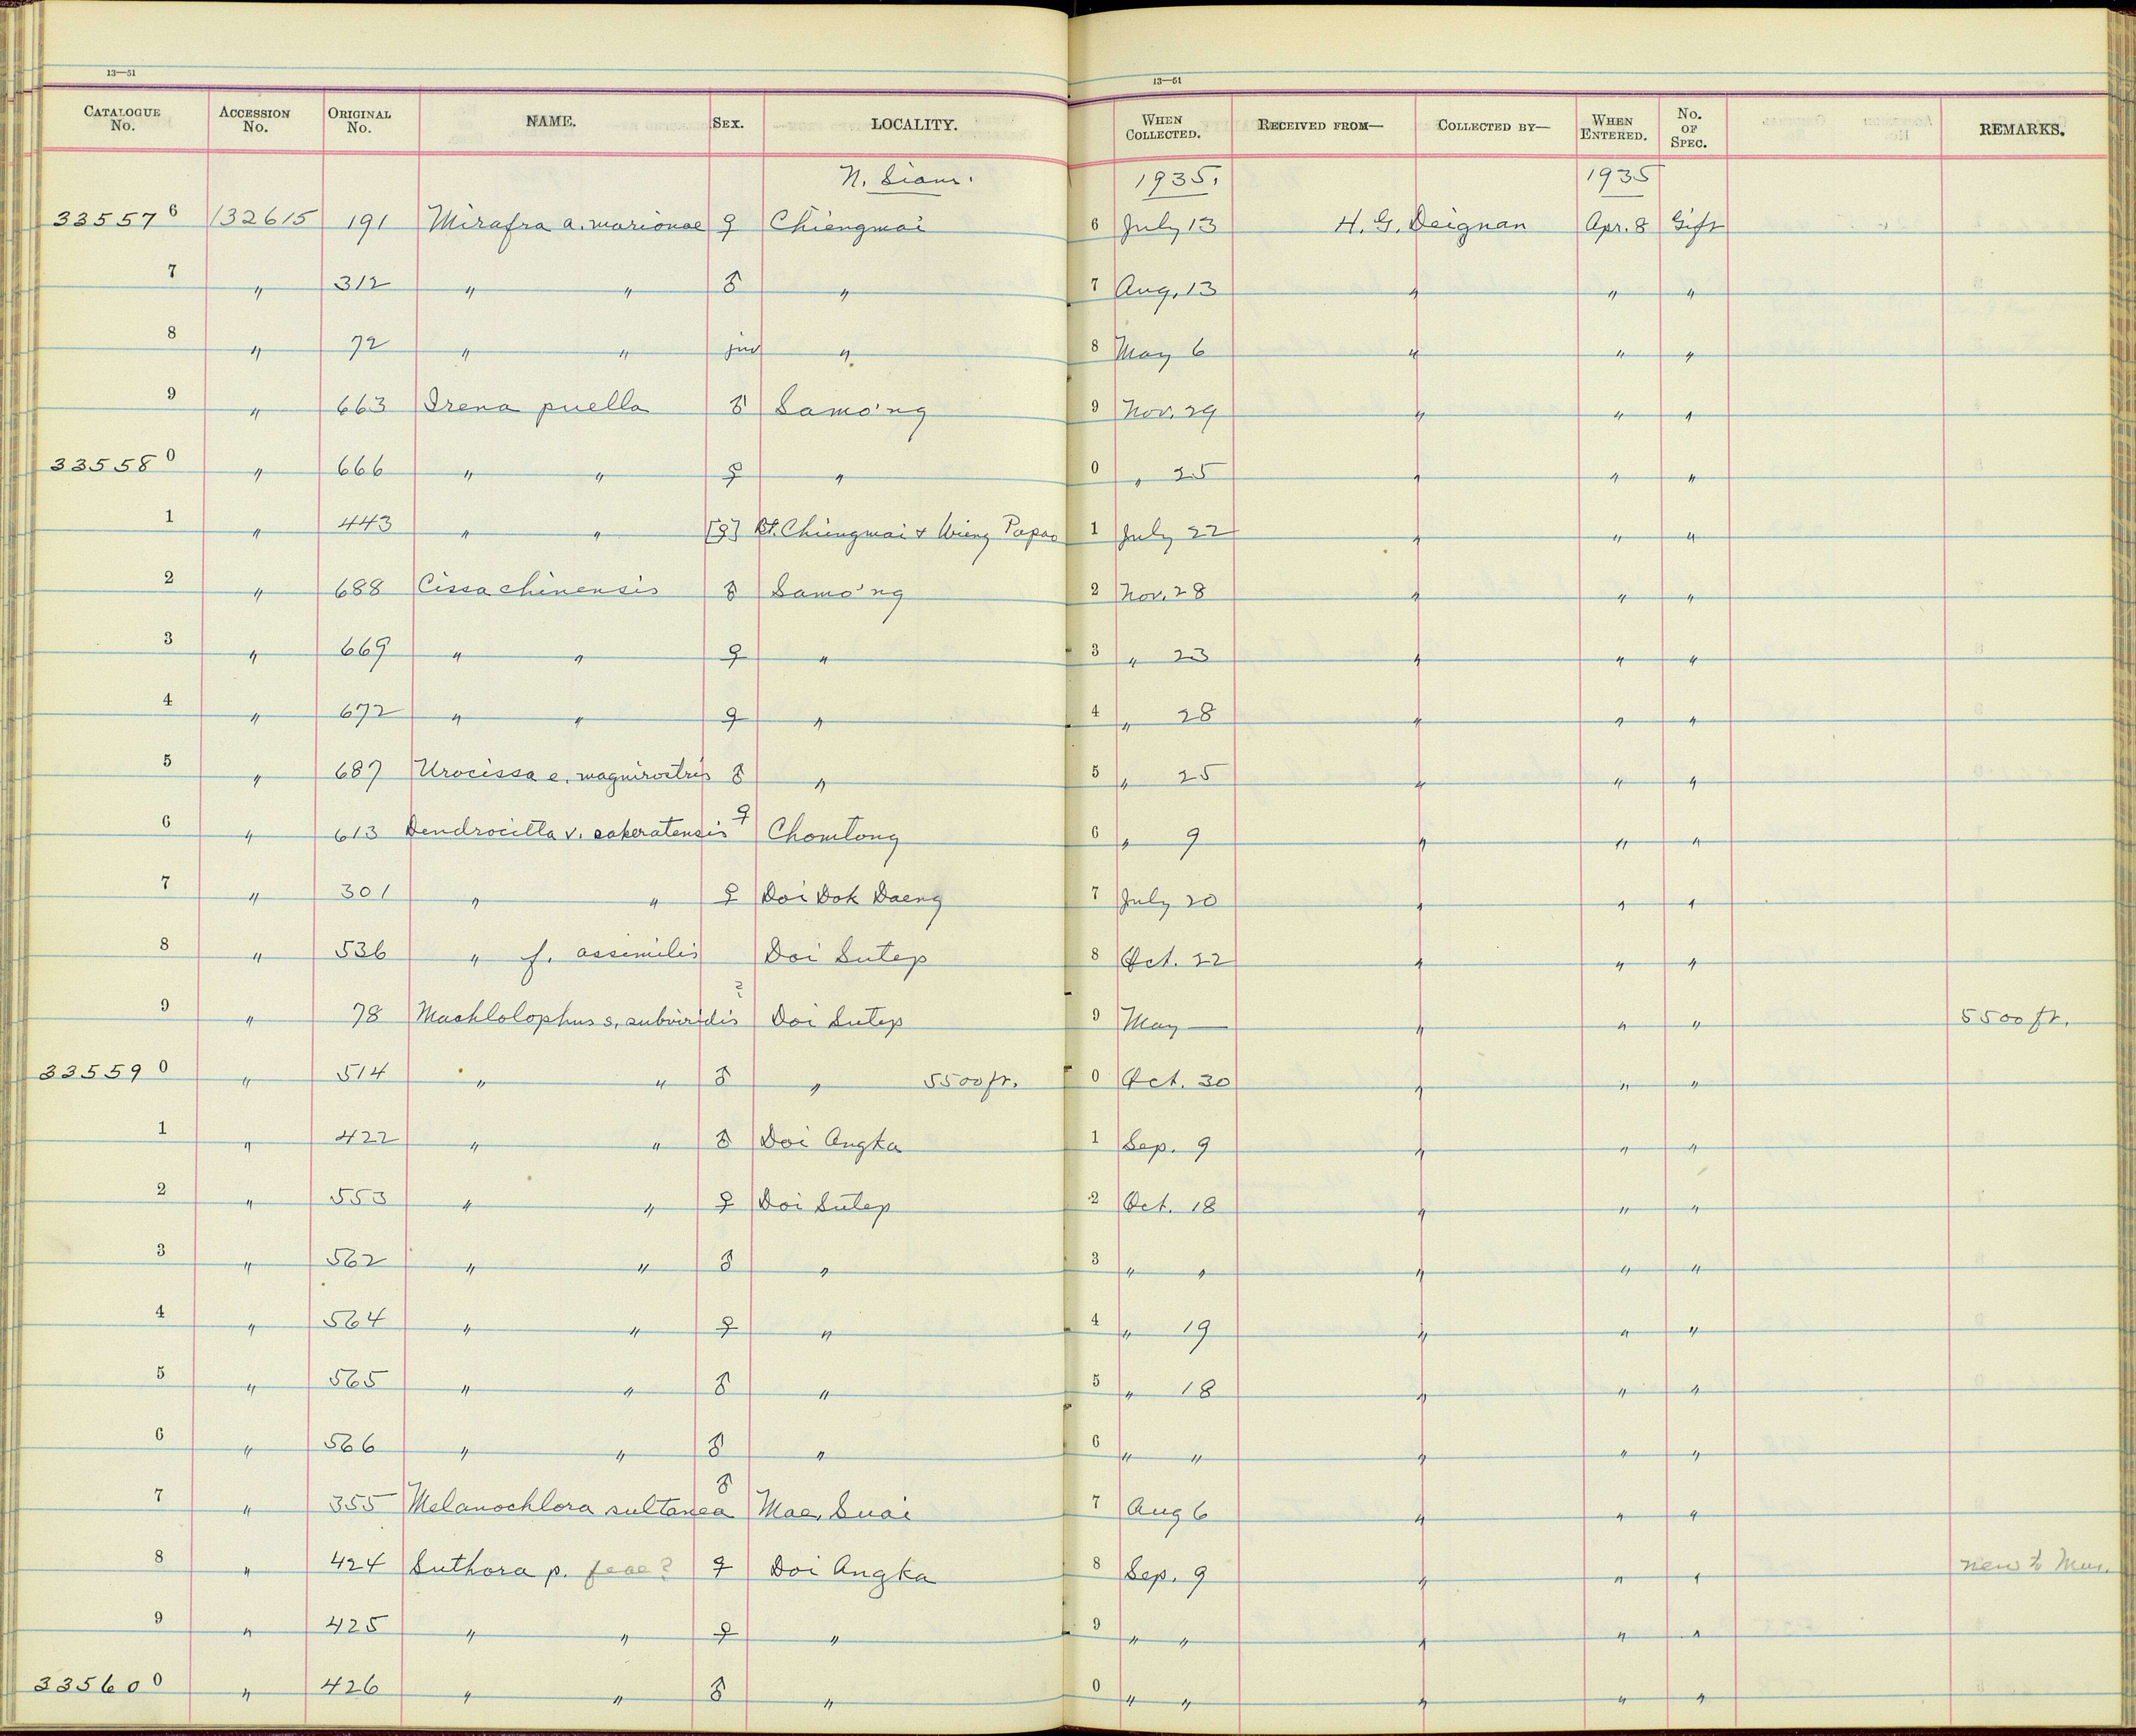 13—51 13—51
CATALOGUE No. ACCESSION No. ORIGINAL No. NAME. SEX. LOCALITY. WHEN COLLECTED. RECEIVED FROM— COLLECTED BY— WHEN ENTERED. No. OF SPEC. REMARKS.
N. Siam. 1935. 1935
33557 6 132615 191 Mirafra a. marionae ♀ Chiengmai 6 July 13 H. G. Deignan Apr. 8 Gift
7 " 312 " " ♂ " 7 Aug. 13 " " "
8 " 72 " " juv " 8 May 6 " " "
9 " 663 Irena puella ♂ Samo'ng 9 Nov. 29 " " "
33558 0 " 666 " " ♀ " 0 " 25 " " "
1 " 443 " " [♀] Bt. Chiengmai & Wieng Papao 1 July 22 " " "
2 " 688 Cissa chinensis ♂ Samo'ng 2 Nov. 28 " " "
3 " 669 " " ♀ " 3 " 23 " " "
4 " 672 " " ♀ " 4 " 28 " " "
5 " 687 Urocissa e. magnirostris ♂ " 5 " 25 " " "
6 " 613 Dendrocitta v. sakeratensis ♀ Chomtong 6 " 9 " " "
7 " 301 " " ♀ Doi Dok Daeng 7 July 20 " " "
8 " 536 " f. assimilis Doi Sutep 8 Oct. 22 " " "
9 " 78 Machlolophus s. subviridis ? Doi Sutep 9 May — " " " 5500 ft.
33559 0 " 514 " " ♂ " 5500 ft. 0 Oct. 30 " " "
1 " 422 " " ♂ Doi Angka 1 Sep. 9 " " "
2 " 553 " " ♀ Doi Sutep 2 Oct. 18 " " "
3 " 562 " " ♂ " 3 " " " " "
4 " 564 " " ♀ " 4 " 19 " " "
5 " 565 " " ♂ " 5 " 18 " " "
6 " 566 " " ♂ " 6 " " " " "
7 " 355 Melanochlora sultanea ♂ Mae Suai 7 Aug 6 " " "
8 " 424 Suthora p. feae? ♀ Doi Angka 8 Sep. 9 " " " new to Mus.
9 " 425 " " ♀ " 9 " " " " "
33560 0 " 426 " " ♂ " 0 " " " " "